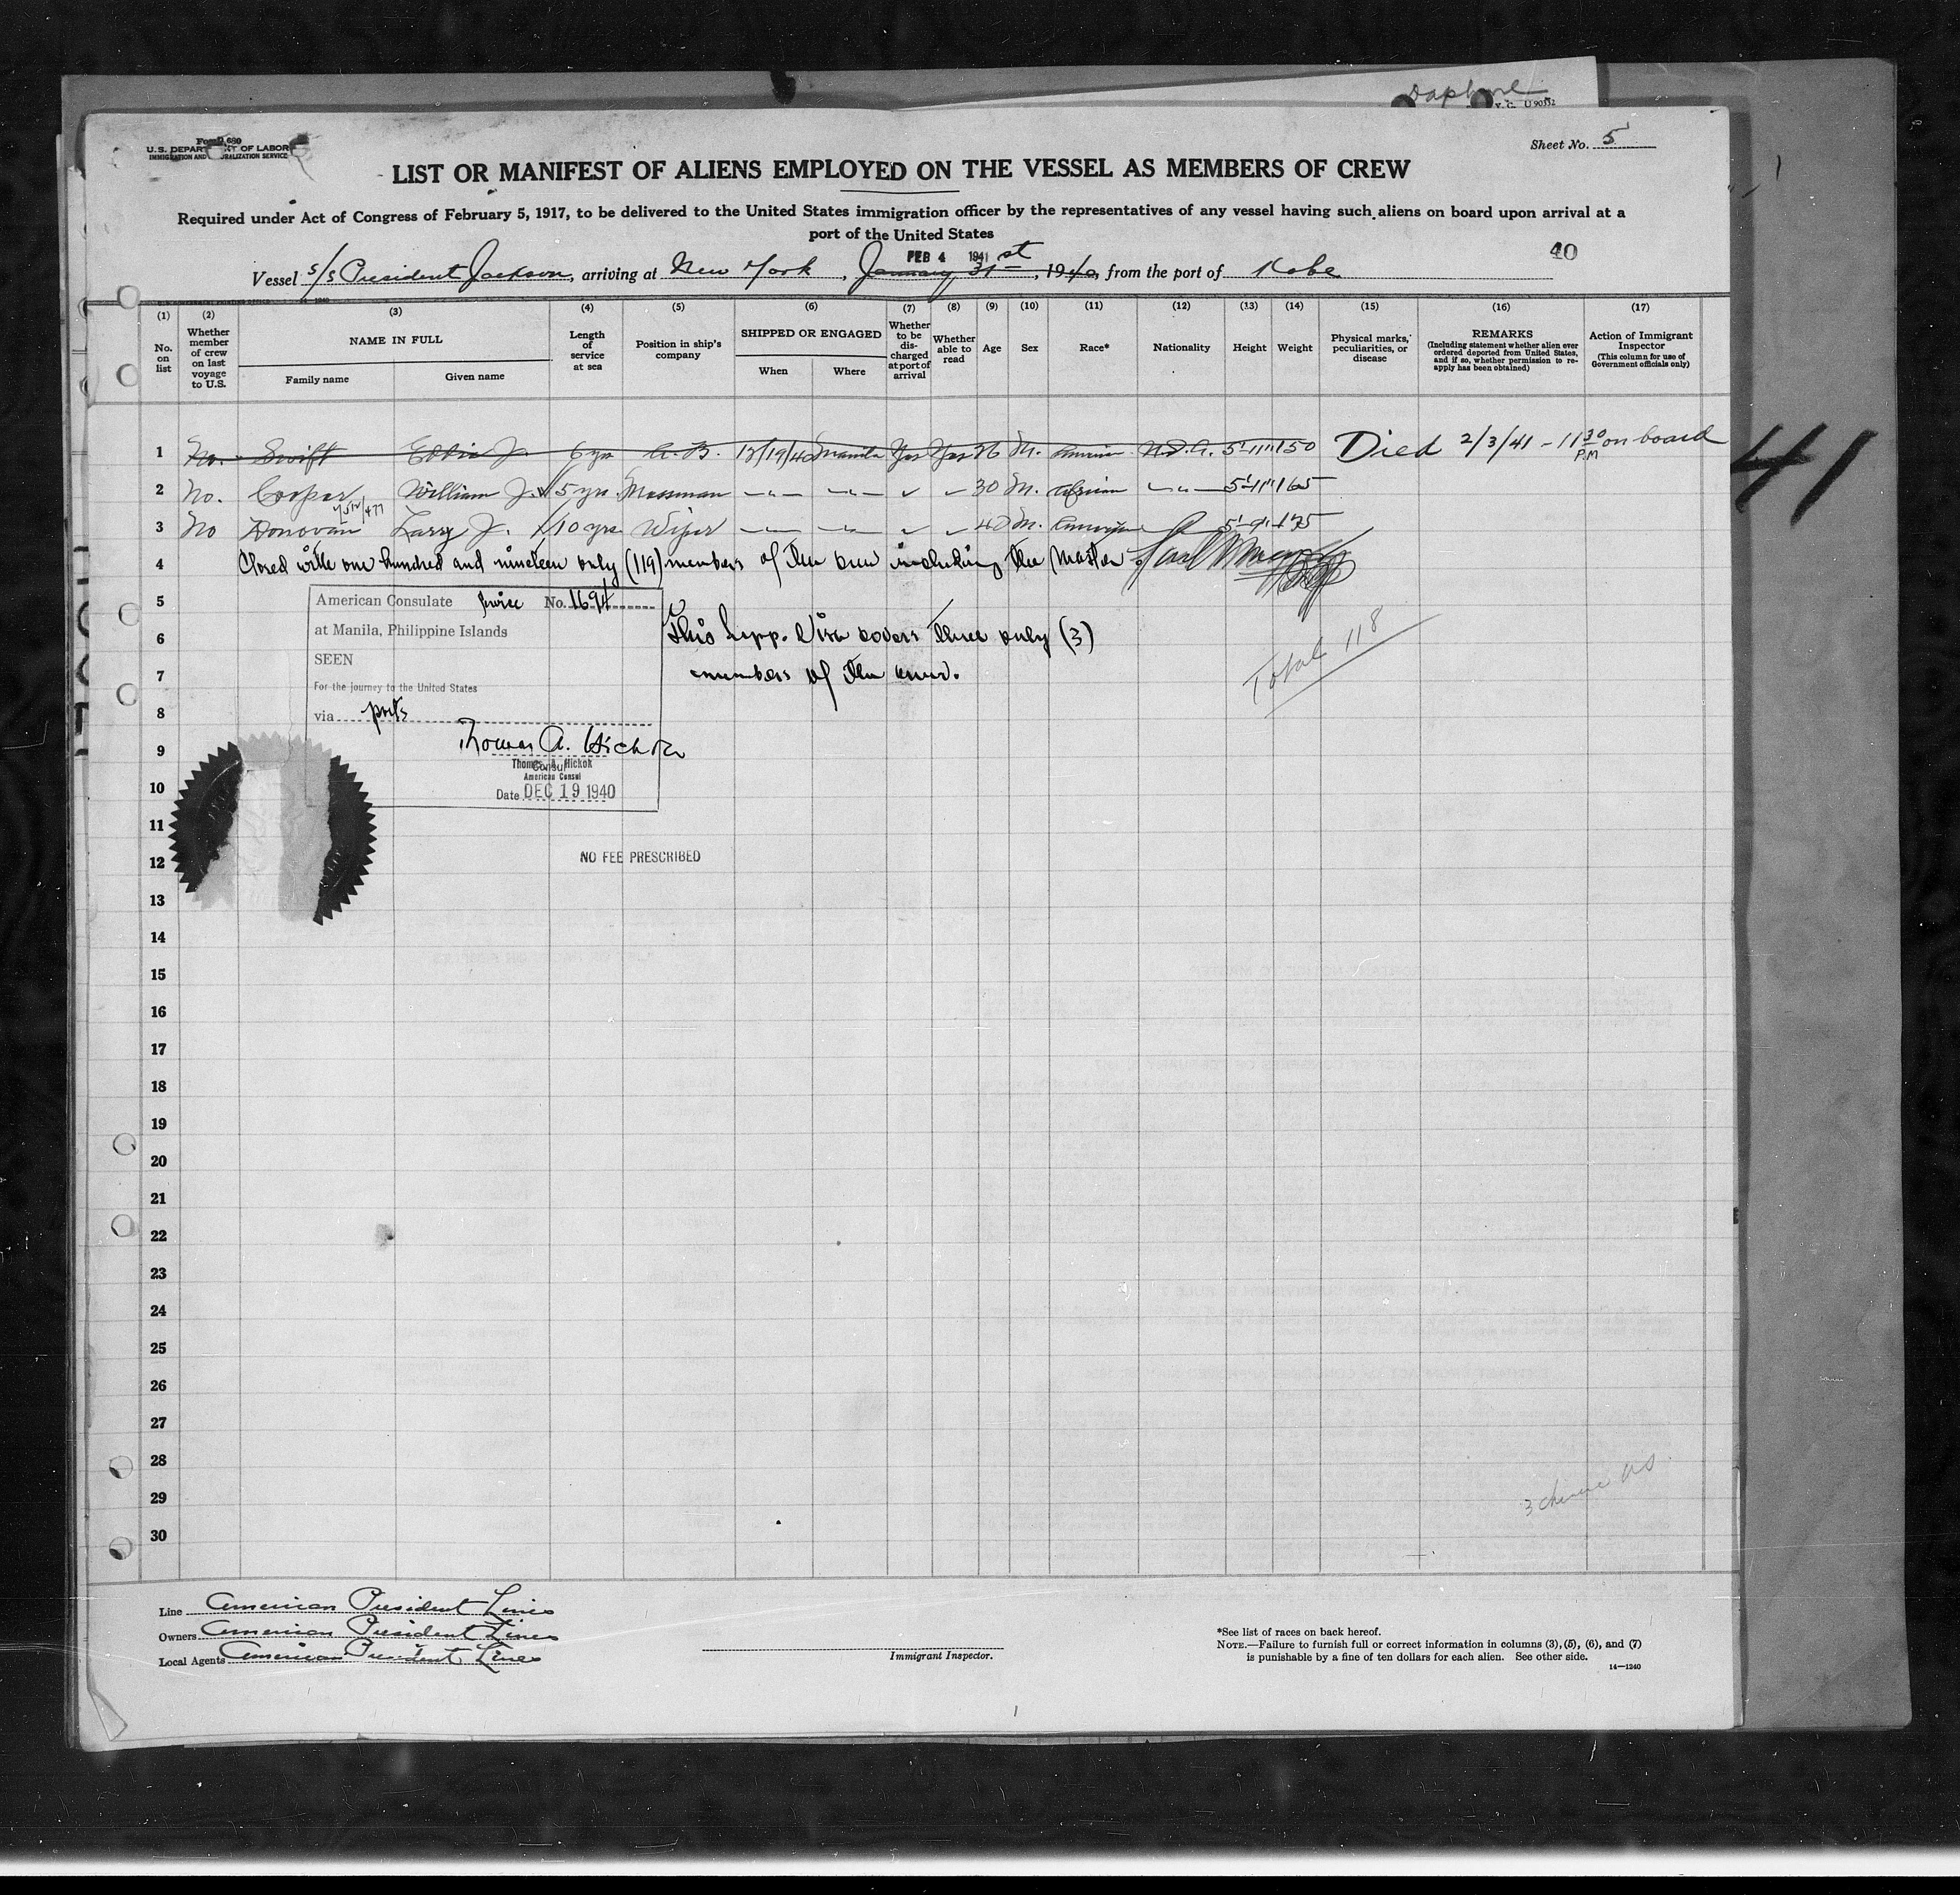 Daphne
Y. C. U 90332
Form 680
U.S. DEPARTMENT OF LABOR
IMMIGRATION AND NATURALIZATION SERVICE
Sheet No. 5
LIST OR MANIFEST OF ALIENS EMPLOYED ON THE VESSEL AS MEMBERS OF CREW
Required under Act of Congress of February 5, 1917, to be delivered to the United States immigration officer by the representatives of any vessel having such aliens on board upon arrival at a
port of the United States
40
FEB 4 1941
Vessel S/S President Jackson, arriving at New York, January 31st, 1940, from the port of Kobe
(1) (2) (3) (4) (5) (6) (7) (8) (9) (10) (11) (12) (13) (14) (15) (16) (17)
No. on list
Whether member of crew on last voyage to U.S.
NAME IN FULL
Family name
Given name
Length of service at sea
Position in ship's company
SHIPPED OR ENGAGED
When
Where
Whether to be discharged at port of arrival
Whether able to read
Age
Sex
Race*
Nationality
Height
Weight
Physical marks, peculiarities, or disease
REMARKS
(Including statement whether alien ever ordered deported from United States, and if so, whether permission to reapply has been obtained)
Action of Immigrant Inspector
(This column for use of Government officials only)
1 No. Swift Eddie J. 6 yrs A.B. 12/19/40 Manila Yes Yes 26 M. American U.S.A. 5'-11" 150 Died 2/3/41 - 11 30 PM on board
2 No. Cooper William J. 5 yrs. Messman -"- -"- 30 M. African -"- 5'-11" 165
3 No Donovan Larry J. 10 yrs. Wiper -"- -"- M. American 5'-9" 175
4 Closed with one hundred and nineteen only (119) members of the crew including the Master
41
5
6
7
8
9
10
11
12
13
14
15
16
17
18
19
20
21
22
23
24
25
26
27
28
29
30
American Consulate Service No. 1694
at Manila, Philippine Islands
SEEN
For the journey to the United States
via ports
Thomas A. Hickok
Thomas A. Hickok
Consul
American Consul
Date DEC 19 1940
This Supp. Visa covers three only (3)
members of the crew.
Total 118
NO FEE PRESCRIBED
3 Chinese
Line American President Lines
Owners American President Lines
Local Agents American President Lines
Immigrant Inspector.
*See list of races on back hereof.
NOTE.—Failure to furnish full or correct information in columns (3), (5), (6), and (7)
is punishable by a fine of ten dollars for each alien. See other side.
14—1240